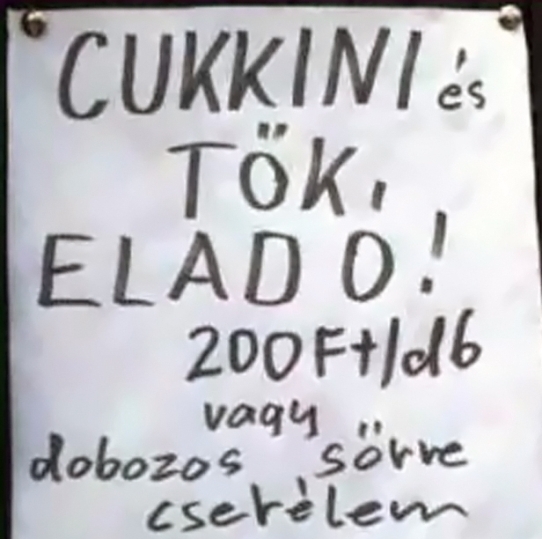 CUKKINI és
TŐK,
ELADO!
200Ft/db
vagy
dobozos sörre
cserèlem